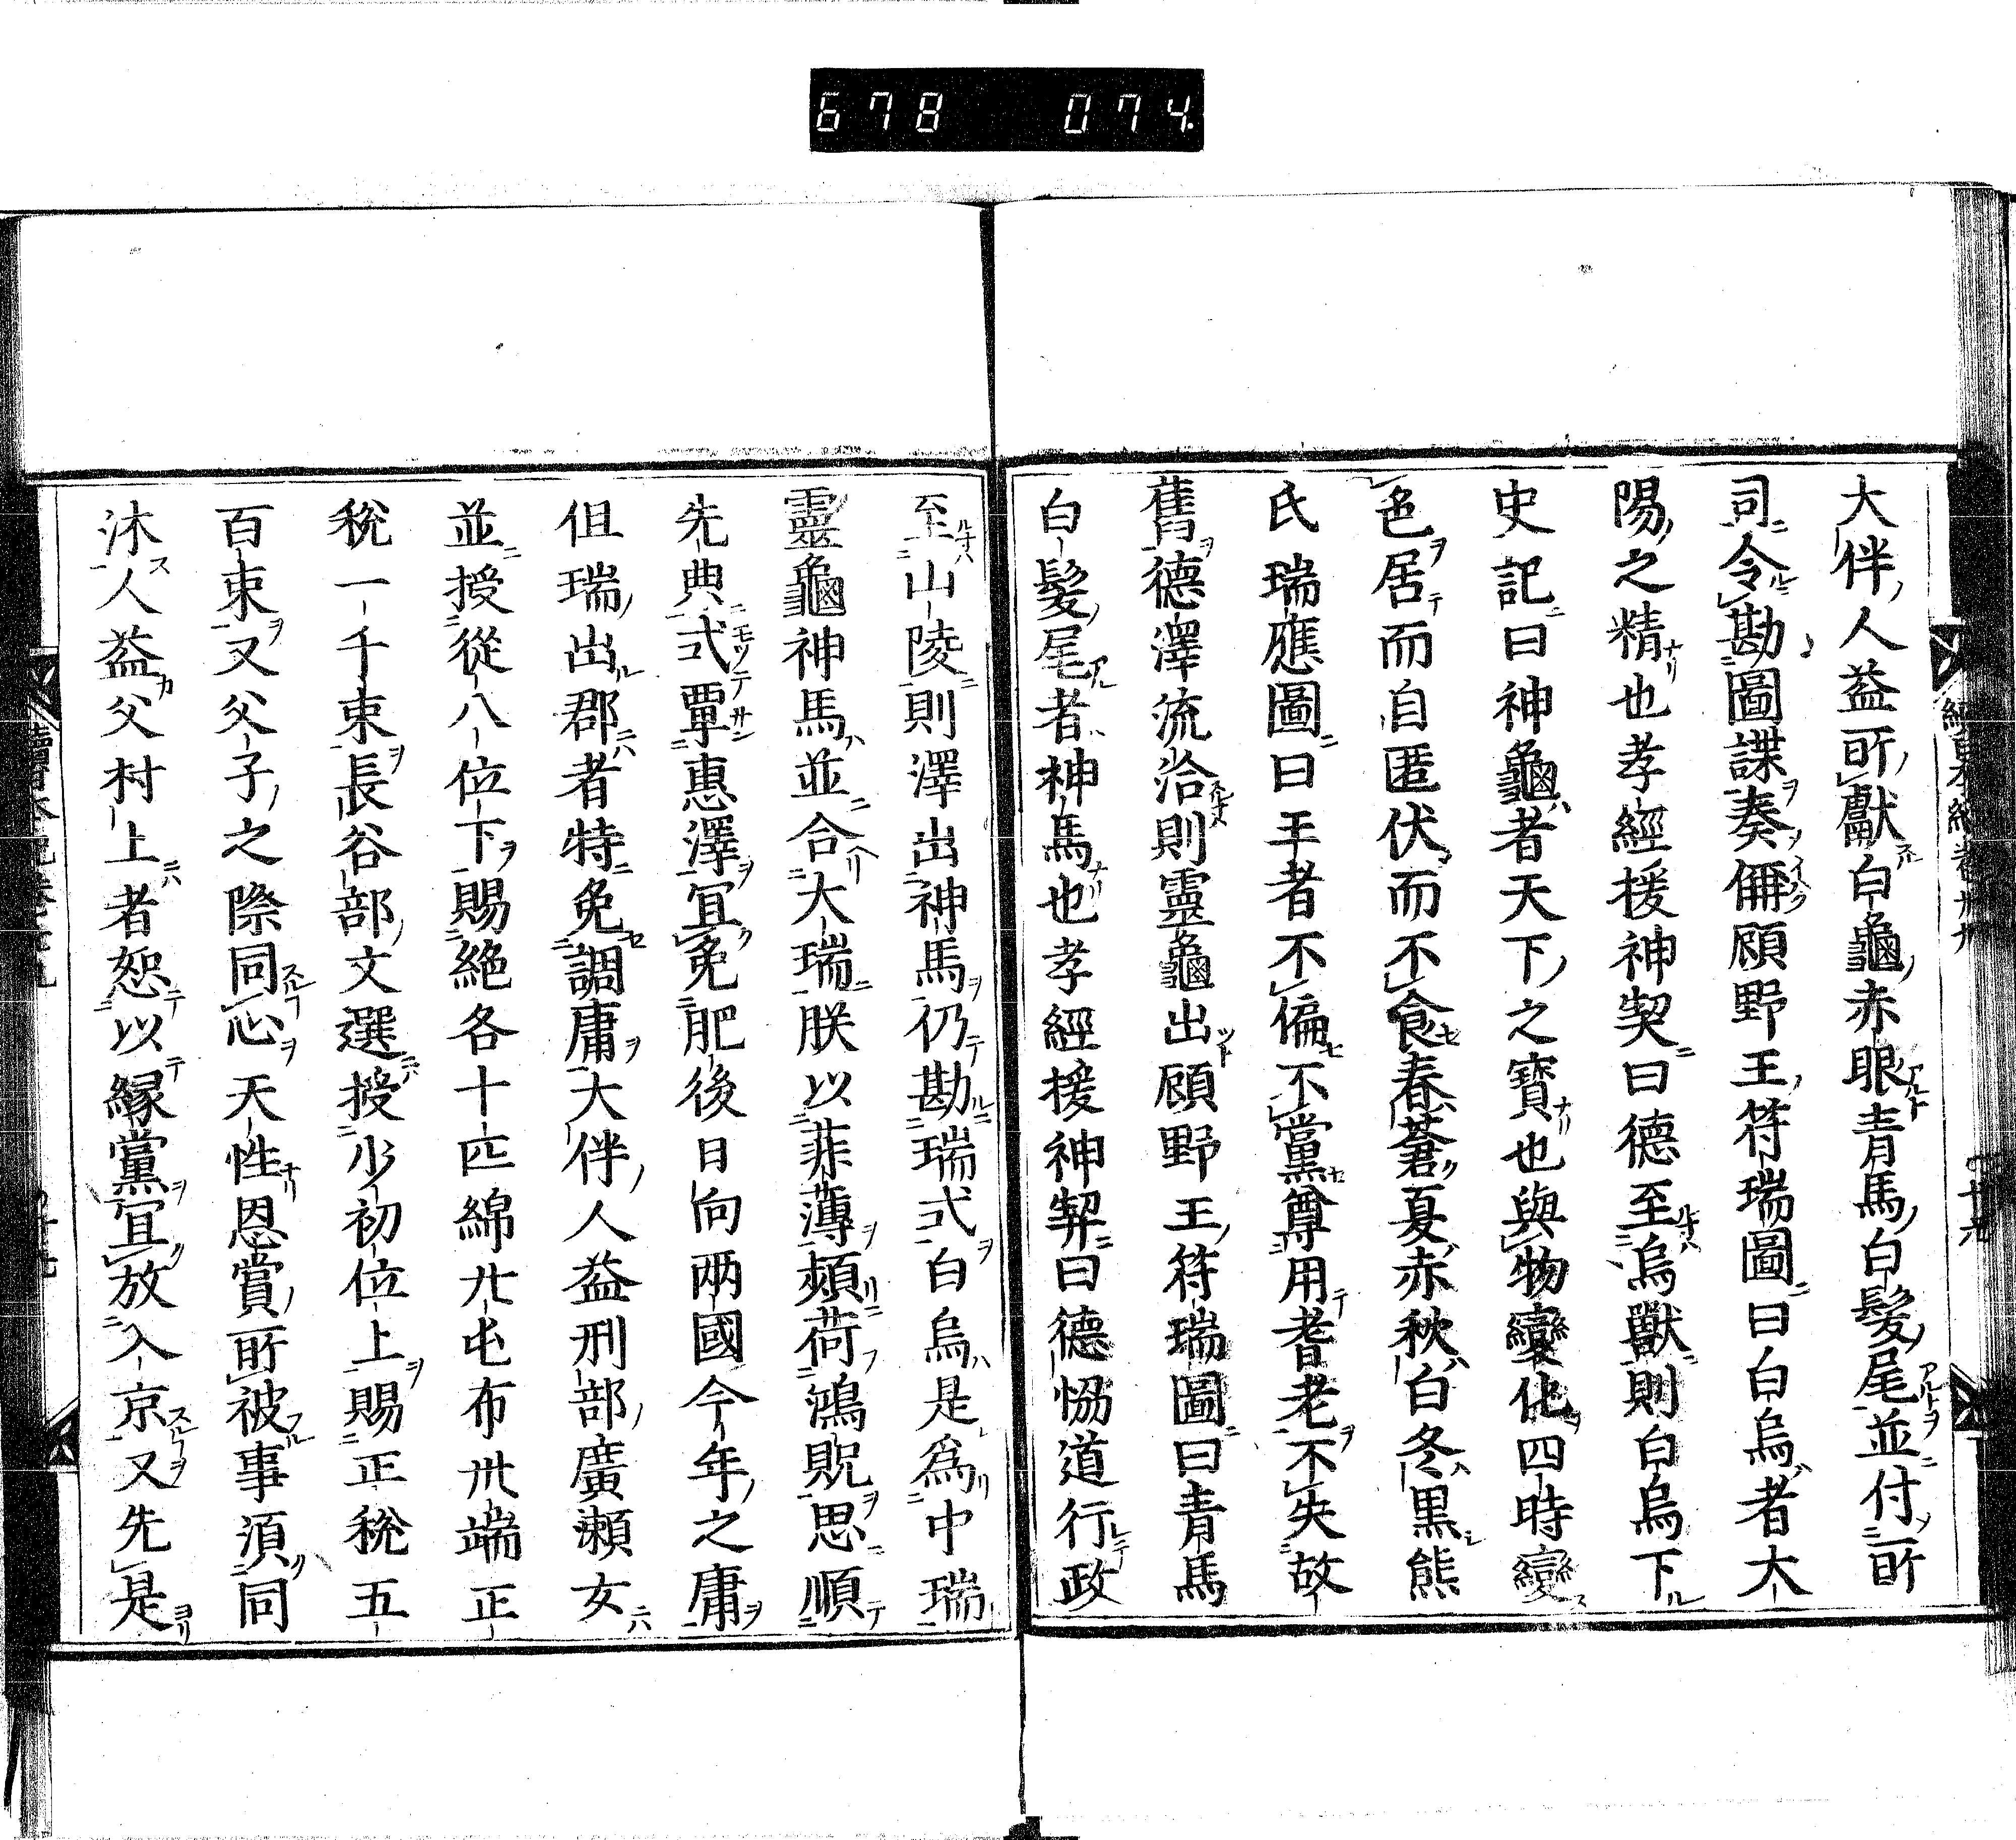 678 074
大伴人益所獻白龜赤眼青馬白髮尾並付所
司令勘圖諜奏偁顧野王符瑞圖曰白烏者大
陽之精也孝經援神契曰德至鳥獸則白烏下
史記曰神龜者天下之寶也與物變化四時變
色居而自匿伏而不食春蒼夏赤秋白冬黑熊
氏瑞應圖曰王者不偏不黨尊用耆老不失故
舊德澤流洽則靈龜出顧野王符瑞圖曰青馬
白髮尾者神馬也孝經援神契曰德恊道行政
至山陵則澤出神馬仍勘瑞式白烏是爲中瑞
靈龜神馬並合大瑞朕以菲薄頻荷鴻貺思順
先典式覃惠澤宜免肥後日向兩國今年之庸
但瑞出郡者特免調庸大伴人益刑部廣瀬女
並授從八位下賜絁各十匹綿廿屯布卅端正
稅一千束長谷部文選授少初位上賜正稅五
百束又父子之際同心天性恩賞所被事須同
沐人益父村上者恕以縁黨宜放入京又先是